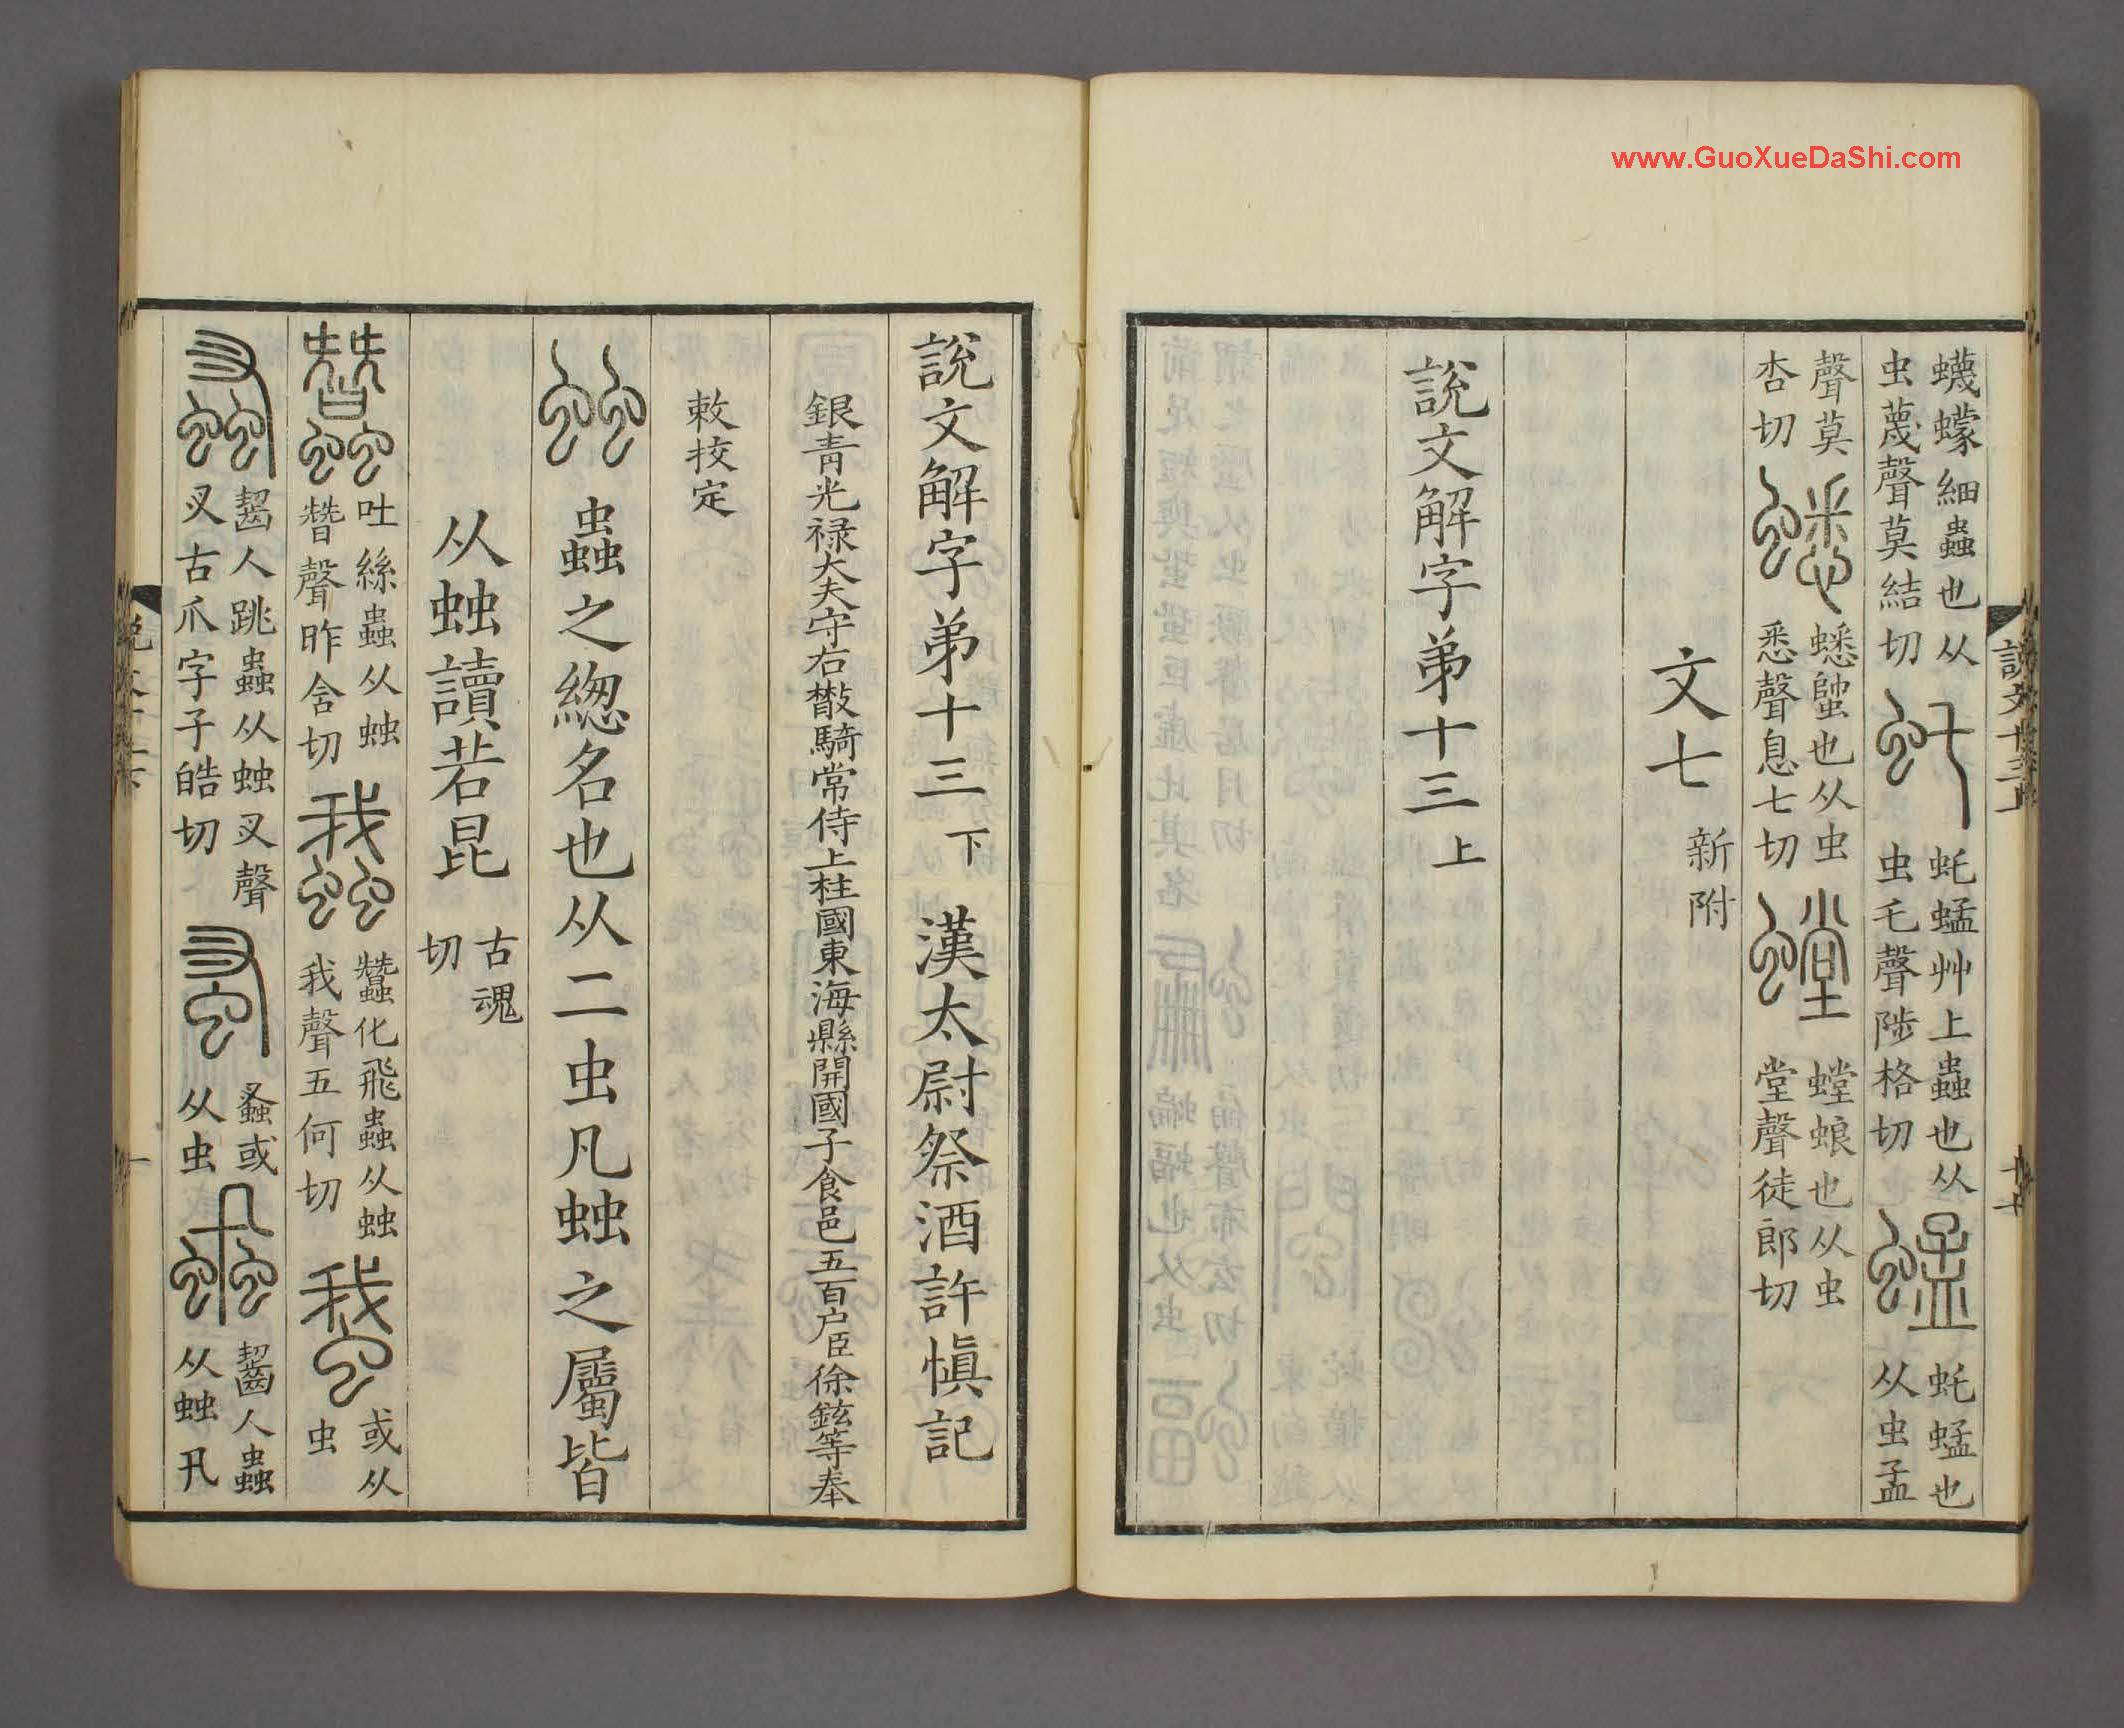 www.GuoXueDaShi.com
蠛蠓細蟲也从
虫蔑聲莫結切
虴
虴蜢艸上蟲也从
虫乇聲陟格切
蜢
虴蜢也
从虫孟
聲莫
杏切
蟋
蟋䗐也从虫
悉聲息七切
螳
螳蜋也从虫
堂聲徒郎切
文七 新附
說文解字弟十三上
說文解字弟十三下 漢太尉祭酒許慎記
銀青光禄大夫守右散騎常侍上柱國東海縣開國子食邑五百户臣徐鉉等奉
敕挍定
䖵
蟲之緫名也从二虫凡䖵之屬皆
从䖵讀若昆 古魂切
蠶
吐絲蟲从䖵
朁聲昨含切
𧖅
蠶化飛蟲从䖵
我聲五何切
蛾
或从
虫
𧖣
齧人跳蟲从䖵叉聲
叉古爪字子皓切
蚤
𧖣或
从虫
䖵卂
齧人蟲
从䖵卂